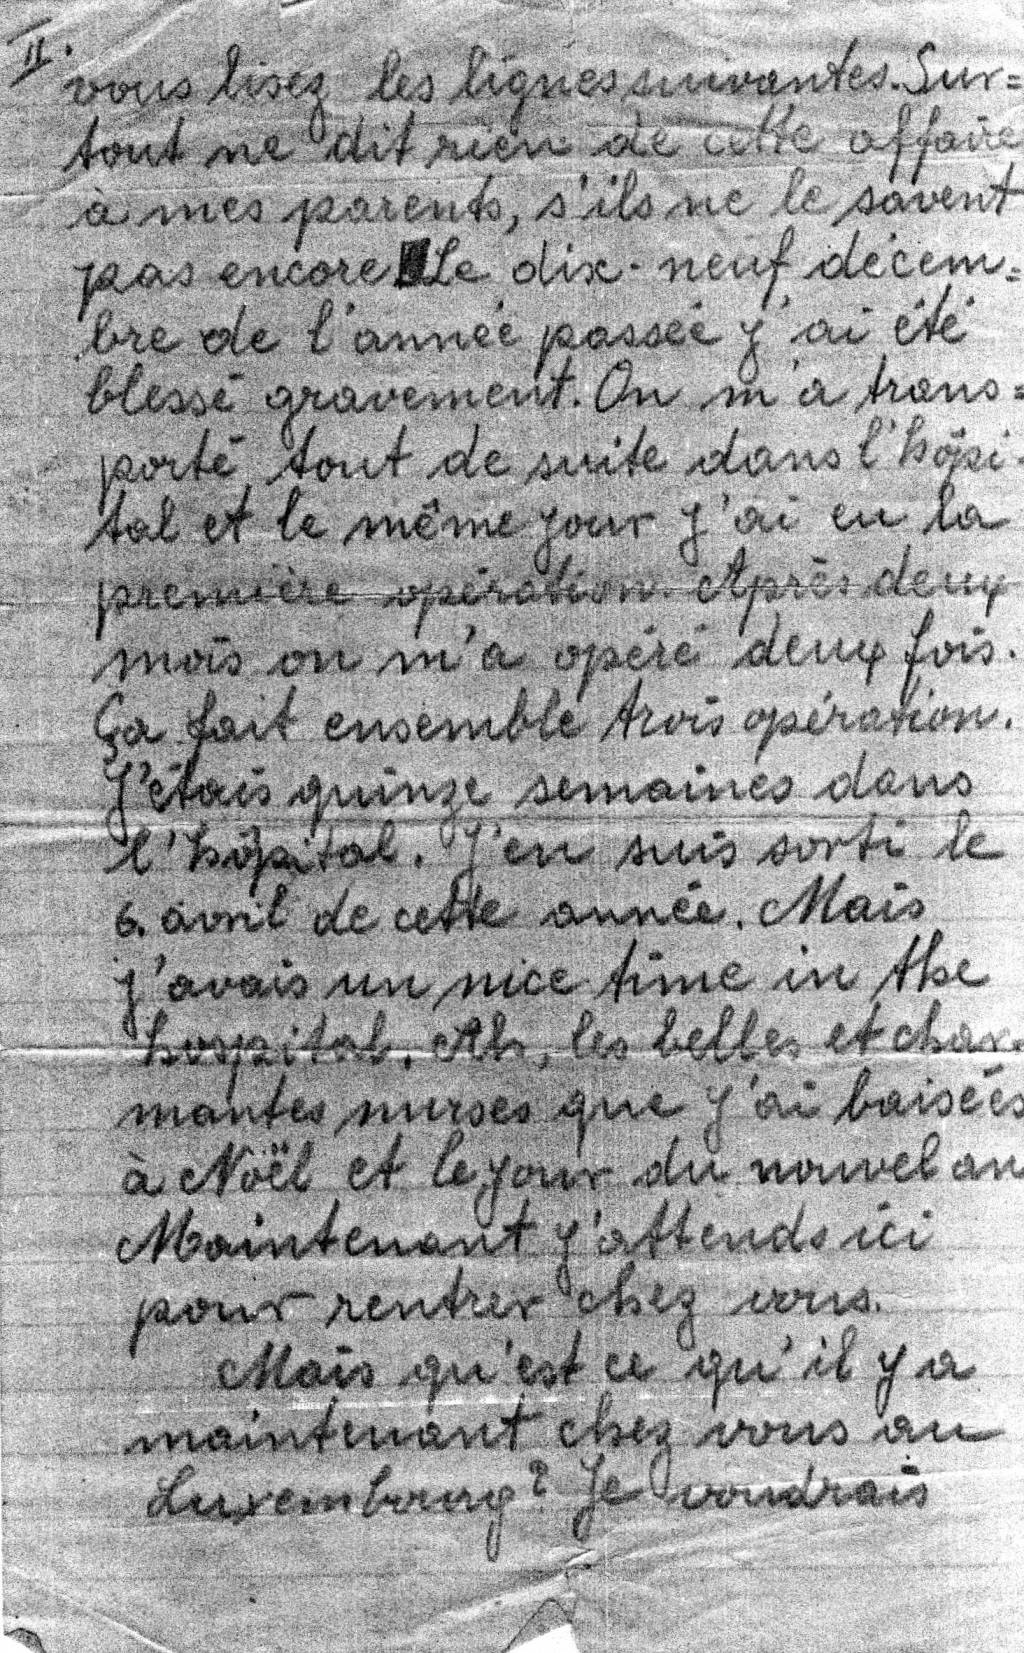 II.
vous lisez les lignes suivantes. Sur=
tout ne dit rien de cette affaire
à mes parents, s'ils ne le savent
pas encore Le dix-neuf décem=
bre de l'année passée j'ai été
blessé gravement. On m'a trans=
porté tout de suite dans l'hôpi-
tal et le même jour j'ai eu la
première opération. Après deux
mois on m'a opéré deux fois.
Ça fait ensemble trois opération.
J'étais quinze semaines dans
l'hôpital. J'en suis sorti le
6. avril de cette année. Mais
j'avais un nice time in the
hospital. Ah, les belles et char-
mantes nurses que j'ai baisées
à Noël et le jour du nouvel an
Maintenant j'attends ici
pour rentrer chez vous.
Mais qu'est ce qu'il y a
maintenant chez vous au
Luxembourg? Je voudrais